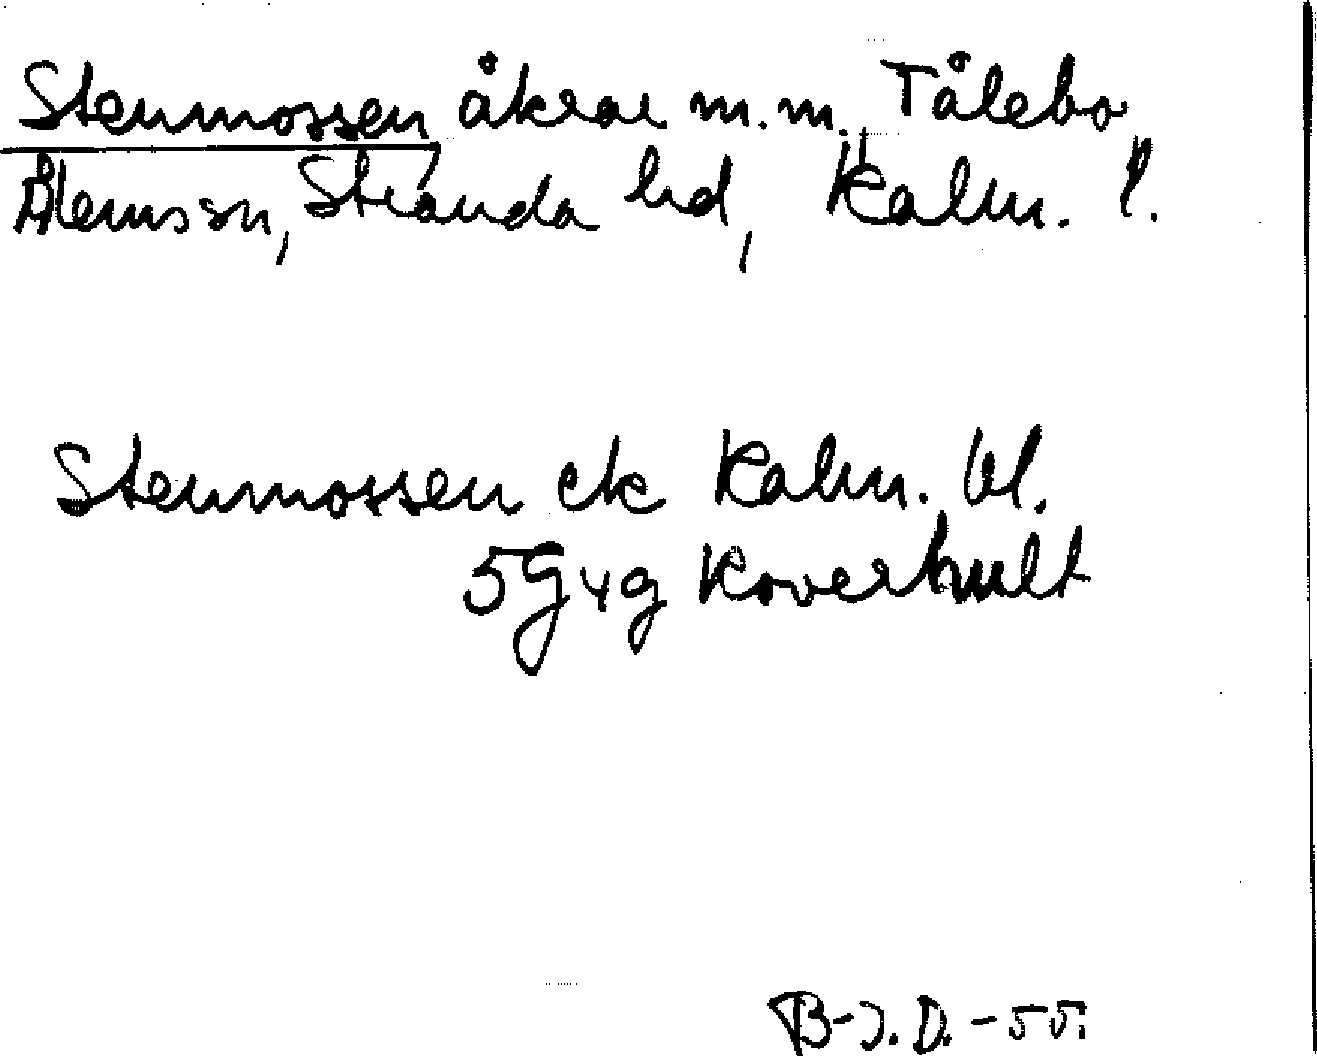 Stenmossen, åkrar m.m., Tålebo,
Ålems sn, Stranda hd, Kalm. l.
Stenmossen ek Kalm. bl.
5G4g Koverhult
B-J.D. -55.